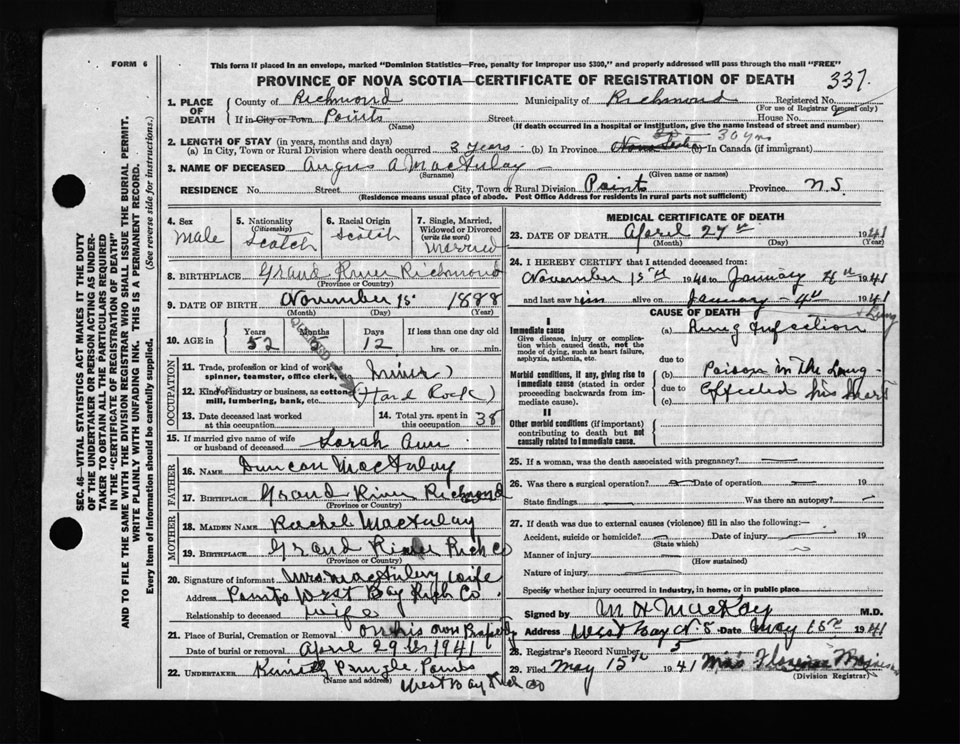 FORM 6
This form if placed in an envelope, marked "Dominion Statistics—Free, penalty for improper use $300," and properly addressed will pass through the mail "FREE"
PROVINCE OF NOVA SCOTIA—CERTIFICATE OF REGISTRATION OF DEATH
337.
1. PLACE OF DEATH
County of Richmond Municipality of Richmond Registered No.
(For use of Registrar General only)
If in City or Town Points Street House No.
(Name) (If death occurred in a hospital or institution, give the name instead of street and number)
2. LENGTH OF STAY (in years, months and days) 30 yrs
(a) In City, Town or Rural Division where death occurred 3 years (b) In Province Nova Scotia (c) In Canada (if immigrant)
3. NAME OF DECEASED Angus A MacAulay
(Surname) (Given name or names)
RESIDENCE No. Street City, Town or Rural Division Points Province N.S.
(Residence means usual place of abode. Post Office Address for residents in rural parts not sufficient)
4. Sex
male
5. Nationality
(Citizenship)
Scotch
6. Racial Origin
Scotch
7. Single, Married, Widowed or Divorced
(write the word)
Married
8. BIRTHPLACE Grand River Richmond
(Province or Country)
9. DATE OF BIRTH November 15 1888
(Month) (Day) (Year)
10. AGE in
Years Months Days If less than one day old
52 5 12 hrs. or min.
OCCUPATION
11. Trade, profession or kind of work as spinner, teamster, office clerk, Miner
12. Kind of industry or business, as cotton mill, lumbering, bank, etc. (Hard Rock)
13. Date deceased last worked at this occupation
14. Total yrs. spent in this occupation 38
15. If married give name of wife or husband of deceased Sarah Ann
FATHER
16. NAME Duncan MacAulay
17. BIRTHPLACE Grand River Richmond
(Province or Country)
MOTHER
18. MAIDEN NAME Rachel MacAulay
19. BIRTHPLACE Grand River Rich Co
(Province or Country)
20. Signature of informant Mrs MacAulay wife
Address Points West Bay Rich Co.
Relationship to deceased wife
21. Place of Burial, Cremation or Removal On his own Property
Date of burial or removal April 29th 1941
22. UNDERTAKER Pringle Points
(Name and address) West Bay Rich Co
MEDICAL CERTIFICATE OF DEATH
23. DATE OF DEATH April 27th 1941
(Month) (Day) (Year)
24. I HEREBY CERTIFY that I attended deceased from:
November 15th 1940 to January 4th 1941
and last saw him alive on January 4th 1941
CAUSE OF DEATH
I
Immediate cause
Give disease, injury or complication which caused death, not the mode of dying, such as heart failure, asphyxia, asthenia, etc.
(a) Lung Infection
due to
Morbid conditions, if any, giving rise to immediate cause (stated in order proceeding backwards from immediate cause).
(b) Poison in the Lung
due to Effected his heart
(c)
II
Other morbid conditions (if important) contributing to death but not causally related to immediate cause.
25. If a woman, was the death associated with pregnancy?
26. Was there a surgical operation? Date of operation 19
State findings Was there an autopsy?
27. If death was due to external causes (violence) fill in also the following:—
Accident, suicide or homicide? Date of injury 19
(State which)
Manner of injury
(How sustained)
Nature of injury
Specify whether injury occurred in industry, in home, or in public place
Signed by M H MacKay M.D.
Address West Bay N S Date May 15th 1941
28. Registrar's Record Number 5
29. Filed May 15th 1941 Mrs Florence
(Division Registrar)
SEC. 46—VITAL STATISTICS ACT MAKES IT THE DUTY
OF THE UNDERTAKER OR PERSON ACTING AS UNDER-
TAKER TO OBTAIN ALL THE PARTICULARS REQUIRED
IN THE "CERTIFICATE OF REGISTRATION OF DEATH"
AND TO FILE THE SAME WITH THE DIVISION REGISTRAR WHO SHALL ISSUE THE BURIAL PERMIT.
WRITE PLAINLY WITH UNFADING INK. THIS IS A PERMANENT RECORD.
Every item of Information should be carefully supplied. (See reverse side for instructions.)